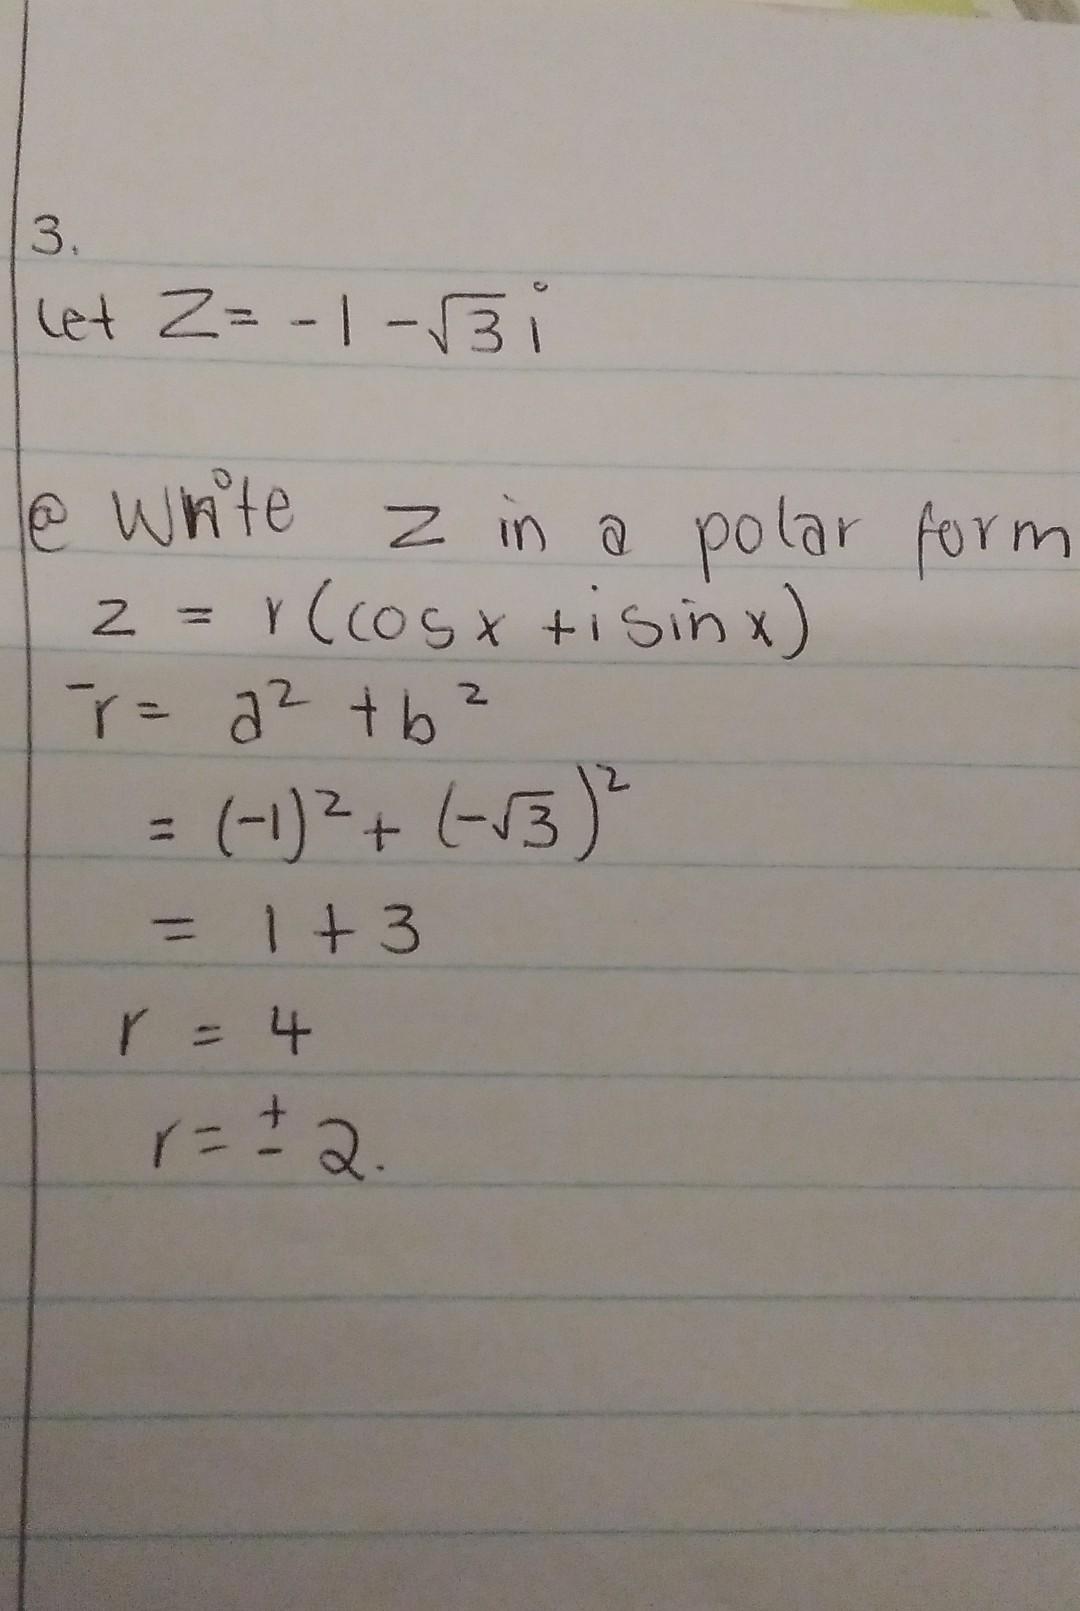 3.
Let Z = -1 - √3 i
@ Write z in a polar form
z = r(cosx + i sin x)
‾r = a² + b²
= (-1)² + (-√3)²
= 1 + 3
r = 4
r = ± 2.